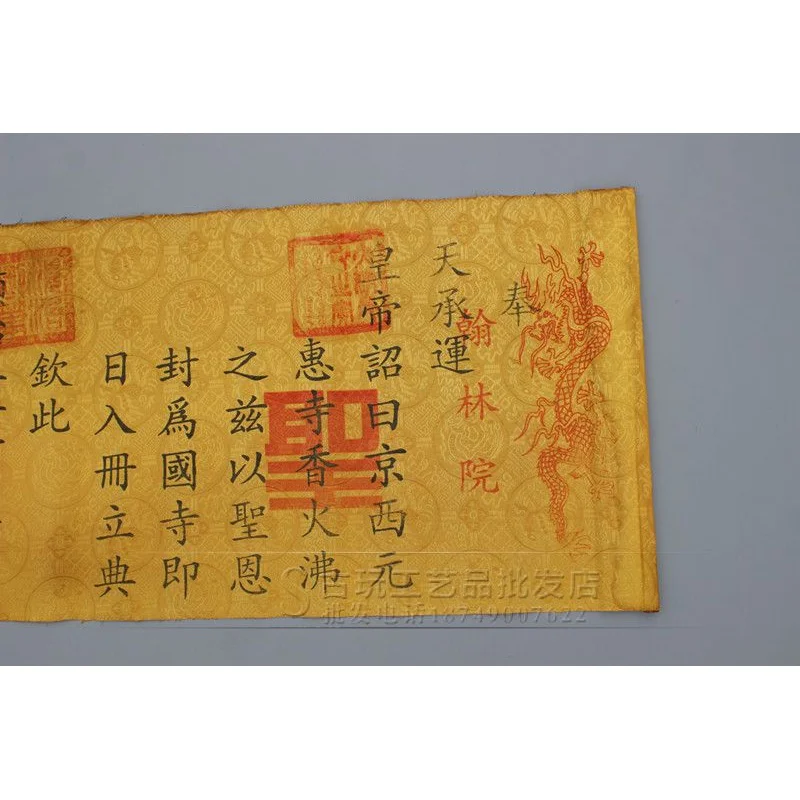 奉
翰林院
天承運
皇帝詔曰京西元
惠寺香火沸
聖
之兹以聖恩
封爲國寺即
日入冊立典
欽此
古玩工艺品批发店
批发电话18749007622